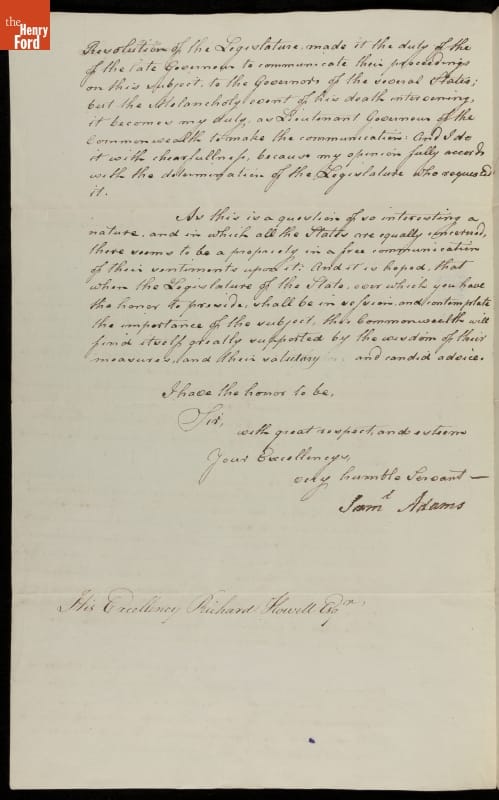 the
Henry
Ford
Resolution of the Legislature, made it the duty of the
of the late Governour to communicate their proceedings
on this subject, to the Governors of the several States;
but the Melancholy event of his death intervening,
it becomes my duty, as Lieutenant Governour of the
Commonwealth to make the communication: And I do
it with chearfullness, because my opinion fully accords
with the determination of the Legislature who requested
it.
As this is a question of so interesting a
nature, and in which all the States are equally concerned,
there seems to be a propriety in a free communication
of their sentiments upon it: And it is hoped, that
when the Legislature of the State, over which you have
the honor to preside, shall be in session, and contemplate
the importance of the subject, this Commonwealth will
find itself greatly supported by the wisdom of their
measures, and their salutary and candid advice.
I have the honor to be,
Sir,
with great respect, and esteem
Your Excellencys,
very humble Servant —
Sam.d Adams
His Excellency Richard Howell Esqr.